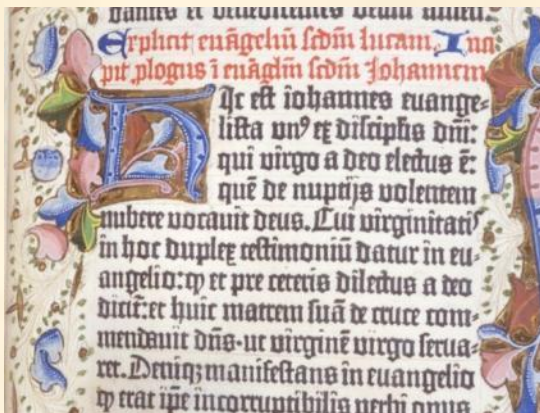 dantes et benedicentes deum amen.
Explicit euāgeliū scdm̄ lucam. Inci
pit ꝓlogus ī euāgliū scdm̄ Johannem
Hic est iohannes euange⸗
lista unꝰ ex discipl̄is dn̄i:
qui virgo a deo electus ē:
quē de nuptijs volentem
nubere vocauit deus. Cui virginitatꝭ
in hoc duplex testimoniū datur in eu⸗
angelio: ꝙ et pre ceteris dilectus a deo
dicit᷑: et huic matrem suā de cruce com⸗
mendauit dn̄s. ut virginē virgo serua⸗
ret. Deniqꝫ manifestans in euangelio
ꝙ erat ip̄e incorruptibilis verbi opus